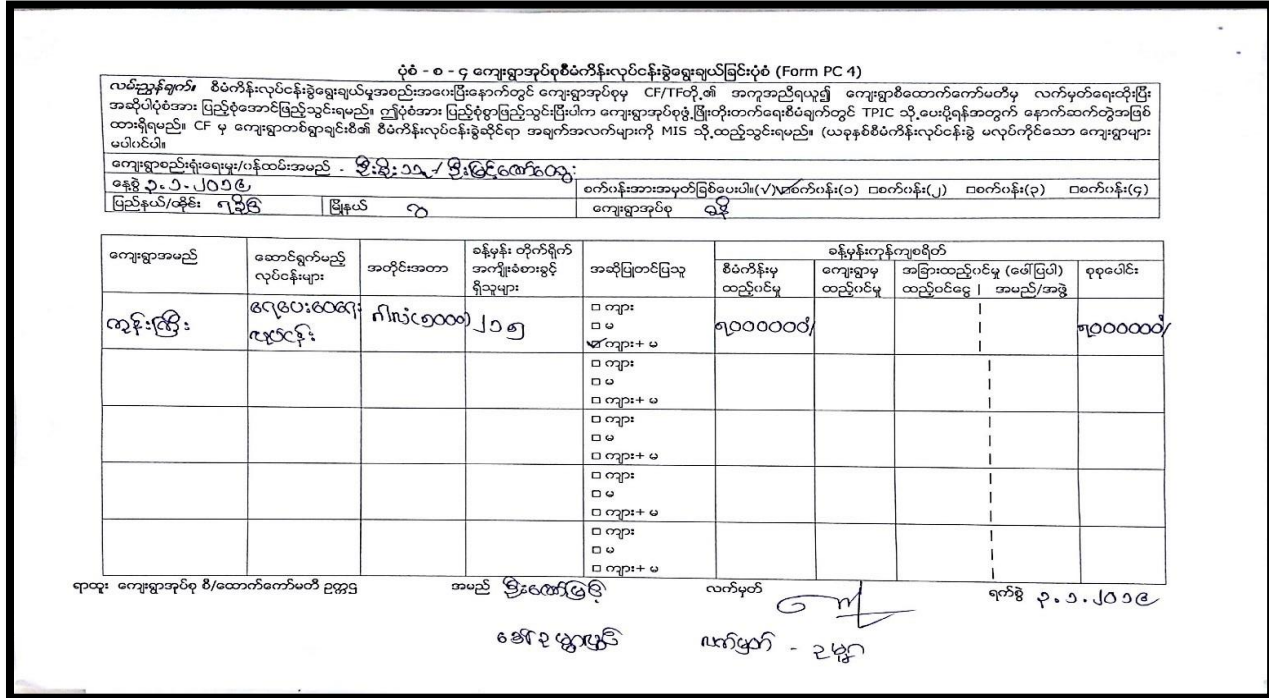 ပုံစံ - စ - ၄ ကျေးရွာအုပ်စုစီမံကိန်းလုပ်ငန်းခွဲရွေးချယ်ခြင်းပုံစံ (Form PC 4)
လမ်းညွှန်ချက်။ စီမံကိန်းလုပ်ငန်းခွဲရွေးချယ်မှုအစည်းအဝေးပြီးနောက်တွင် ကျေးရွာအုပ်စုမှ CF/TFတို့၏ အကူအညီရယူ၍ ကျေးရွာစီထောက်ကော်မတီမှ လက်မှတ်ရေးထိုးပြီး
အဆိုပါပုံစံအား ပြည့်စုံအောင်ဖြည့်သွင်းရမည်။ ဤပုံစံအား ပြည့်စုံစွာဖြည့်သွင်းပြီးပါက ကျေးရွာအုပ်စုဖွံ့ဖြိုးတိုးတက်ရေးစီမံချက်တွင် TPIC သို့ပေးပို့ရန်အတွက် နောက်ဆက်တွဲအဖြစ်
ထားရှိရမည်။ CF မှ ကျေးရွာတစ်ရွာချင်းစီ၏ စီမံကိန်းလုပ်ငန်းခွဲဆိုင်ရာ အချက်အလက်များကို MIS သို့ထည့်သွင်းရမည်။ (ယခုနှစ်စီမံကိန်းလုပ်ငန်းခွဲ မလုပ်ကိုင်သော ကျေးရွာများ
မပါဝင်ပါ။
ကျေးရွာစည်းရုံးရေးမှူး/ဝန်ထမ်းအမည် -
နေ့စွဲ ၃.၁.၂၀၁၉ စက်ဝန်းအားအမှတ်ခြစ်ပေးပါ။(√) ☑စက်ဝန်း(၁) □စက်ဝန်း(၂) □စက်ဝန်း(၃) □စက်ဝန်း(၄)
ပြည်နယ်/တိုင်း ရခိုင် မြို့နယ် ဂွ ကျေးရွာအုပ်စု
ကျေးရွာအမည် ဆောင်ရွက်မည့် လုပ်ငန်းများ အတိုင်းအတာ ခန့်မှန်း တိုက်ရိုက် အကျိုးခံစားခွင့် ရှိသူများ အဆိုပြုတင်ပြသူ ခန့်မှန်းကုန်ကျစရိတ်
စီမံကိန်းမှ ထည့်ဝင်မှု ကျေးရွာမှ ထည့်ဝင်မှု အခြားထည့်ဝင်မှု (ဖေါ်ပြပါ) ထည့်ဝင်ငွေ | အမည်/အဖွဲ့ စုစုပေါင်း
ကျွန်းကြီး ရေပေးဝေရေး လုပ်ငန်း ဂါလံ(၅၀၀၀) ၂၁၅ □ ကျား
□ မ
☑ ကျား+ မ ၅၀၀၀၀၀၀/ ၅၀၀၀၀၀၀/
□ ကျား
□ မ
□ ကျား+ မ
□ ကျား
□ မ
□ ကျား+ မ
□ ကျား
□ မ
□ ကျား+ မ
□ ကျား
□ မ
□ ကျား+ မ
ရာထူး ကျေးရွာအုပ်စု စီ/ထောက်ကော်မတီ ဥက္ကဋ္ဌ အမည် လက်မှတ် ရက်စွဲ ၃.၁.၂၀၁၉
လက်မှတ် -